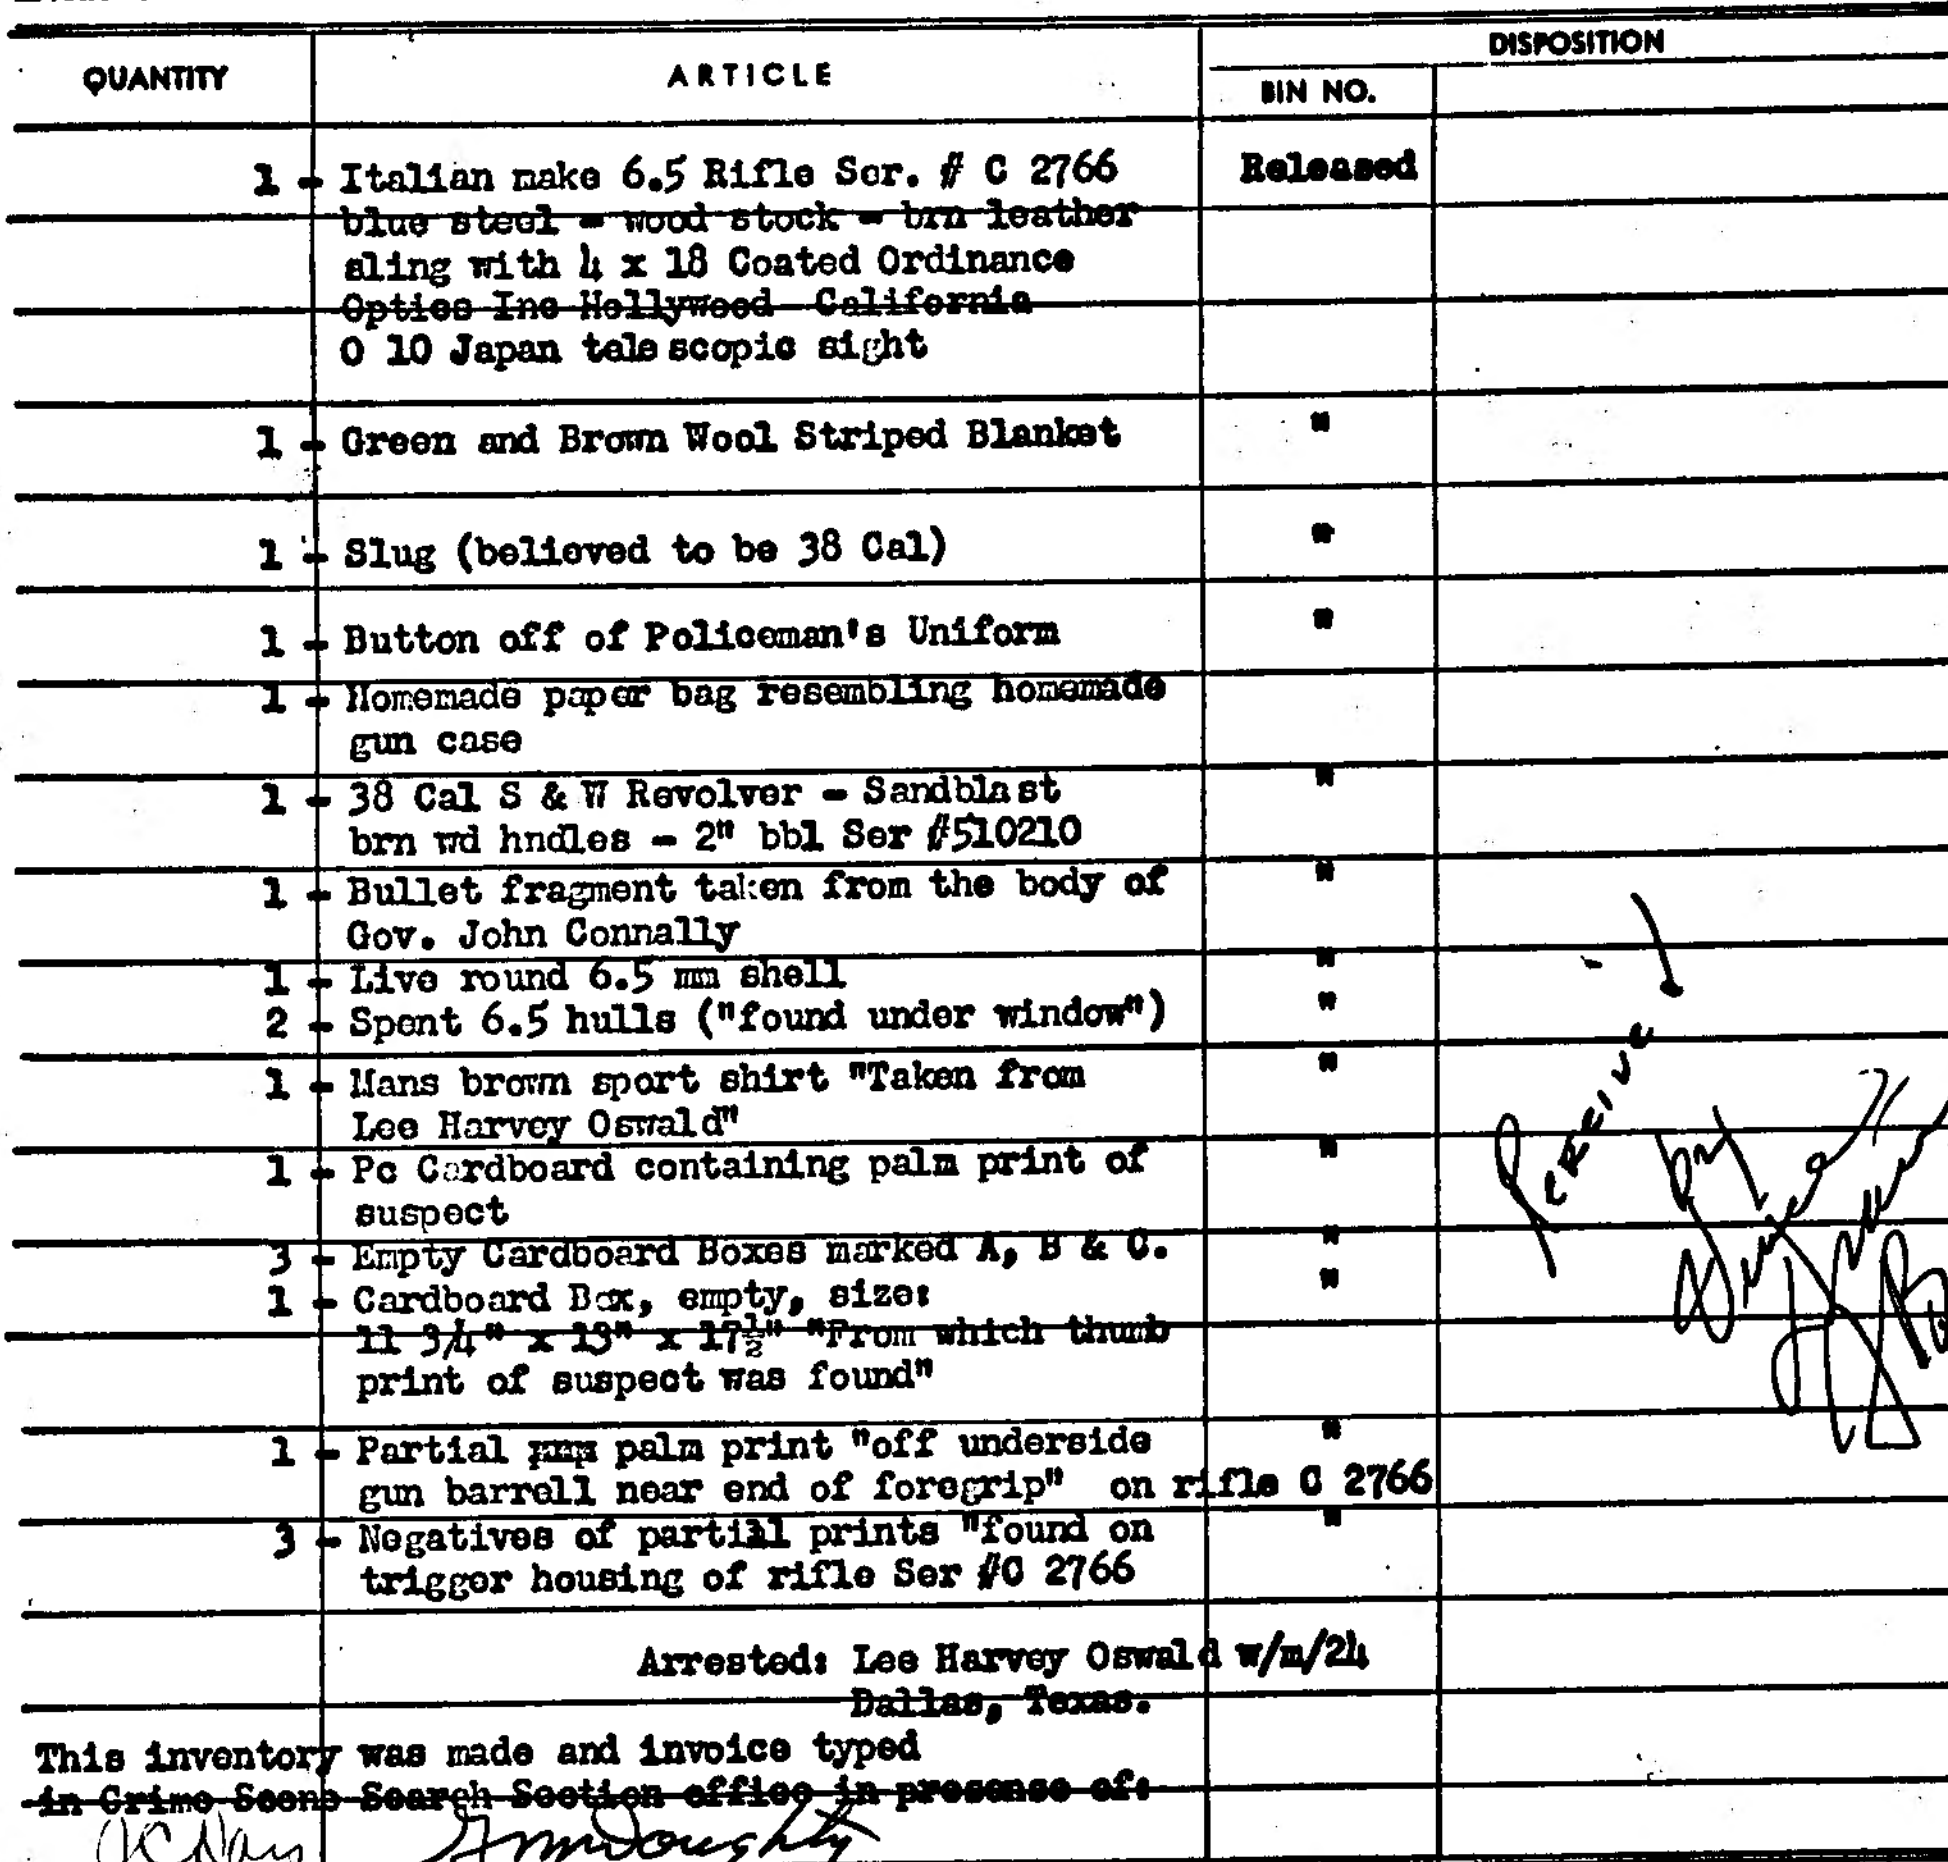 QUANTITY ARTICLE DISPOSITION
BIN NO.
1 - Italian make 6.5 Rifle Ser. # C 2766 Released
blue steel - wood stock - brn leather
sling with 4 x 18 Coated Ordinance
Optics Inc Hollywood California
0 10 Japan telescopic sight
1 - Green and Brown Wool Striped Blanket "
1 - Slug (believed to be 38 Cal) "
1 - Button off of Policeman's Uniform "
1 - Homemade paper bag resembling homemade
gun case
1 - 38 Cal S & W Revolver - Sandblast "
brn wd hndles - 2" bbl Ser #510210
1 - Bullet fragment taken from the body of "
Gov. John Connally
1 - Live round 6.5 mm shell "
2 - Spent 6.5 hulls ("found under window") "
1 - Mans brown sport shirt "Taken from "
Lee Harvey Oswald"
1 - Pc Cardboard containing palm print of "
suspect
3 - Empty Cardboard Boxes marked A, B & C. "
1 - Cardboard Box, empty, size: "
11 3/4" x 13" x 17½" "From which thumb
print of suspect was found"
1 - Partial palm print "off underside "
gun barrell near end of foregrip" on rifle C 2766
3 - Negatives of partial prints "found on "
trigger housing of rifle Ser #C 2766
Arrested: Lee Harvey Oswald w/m/24
Dallas, Texas.
This inventory was made and invoice typed
in Crime Scene Search Section office in presense of:
JC Day Doughty